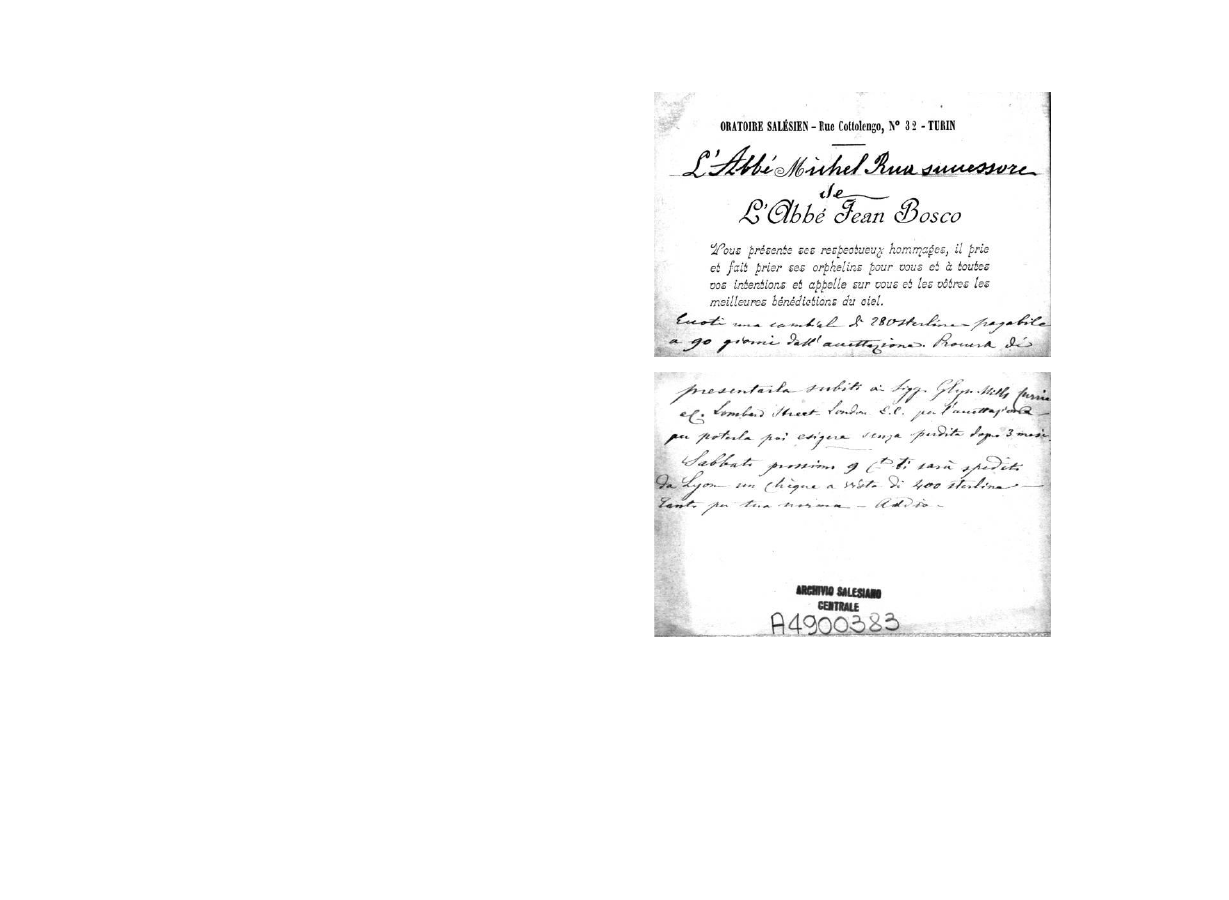 ORATOIRE SALÉSIEN – Rue Cottolengo, Nº 32 - TURIN
L'Abbé Michel Rua successore
de
L'Abbé Jean Bosco
Vous présente ses respectueux hommages, il prie
et fait prier ses orphelins pour vous et à toutes
vos intentions et appelle sur vous et les vôtres les
meilleures bénédictions du ciel.
Eccoti una cambial di 280 sterline pagabile
a 90 giorni dall'accettazione. Procura di
presentarla subito a Sigg. Glyn Mills Currie
e C. Lombard Street London E.C. per l'accettazione
per poterla poi esigere senza perdita dopo 3 mesi
Sabbato prossimo 9 ti sarà spedito
da Lyon un chèque a vista di 400 sterline
Tanto per tua norma – Addio –
ARCHIVIO SALESIANO
CENTRALE
A4900383